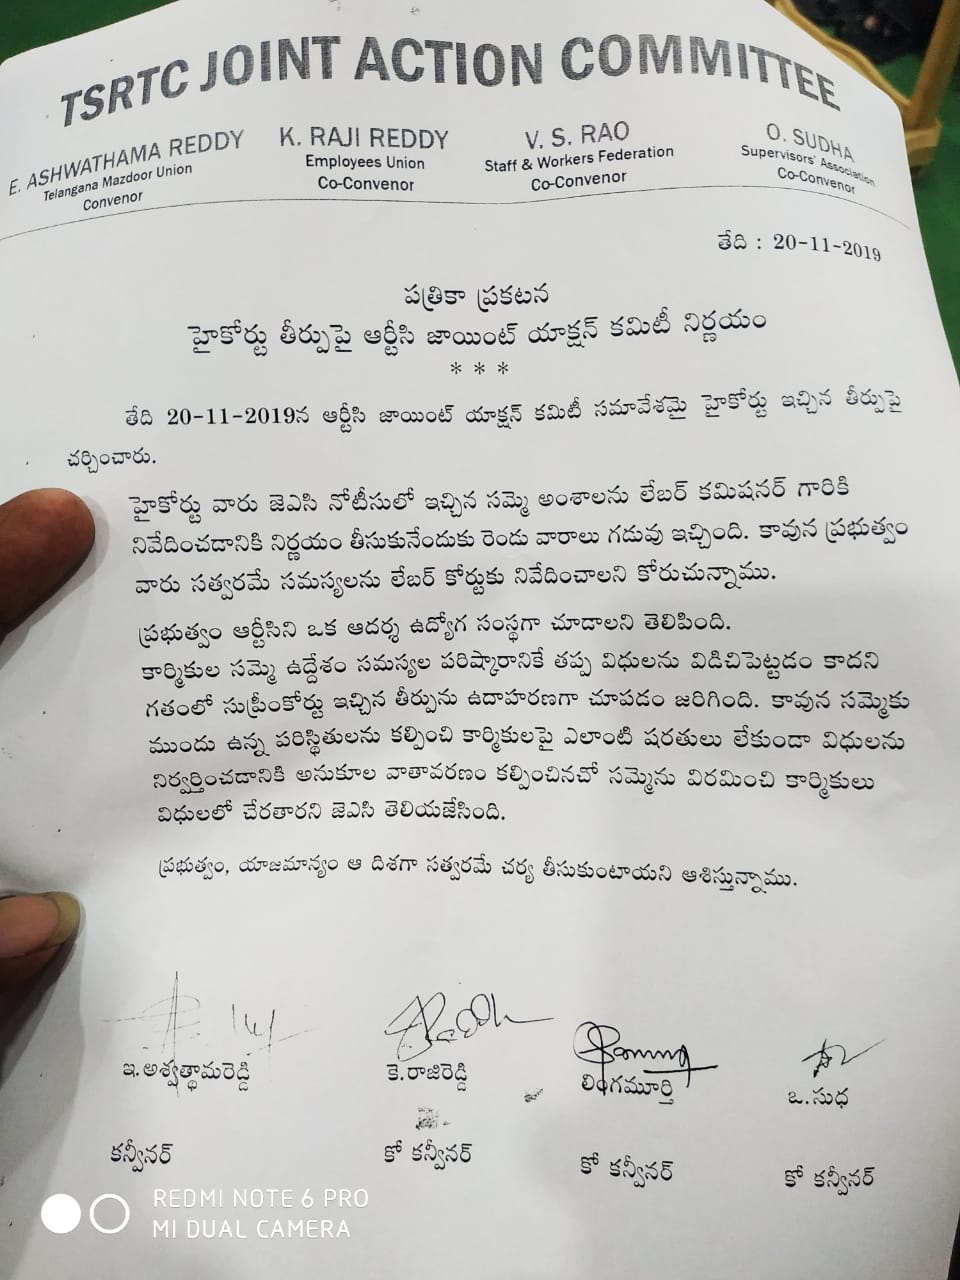 TSRTC JOINT ACTION COMMITTEE
E. ASHWATHAMA REDDY
Telangana Mazdoor Union
Convenor
K. RAJI REDDY
Employees Union
Co-Convenor
V. S. RAO
Staff & Workers Federation
Co-Convenor
O. SUDHA
Supervisors' Association
Co-Convenor
తేది : 20-11-2019
పత్రికా ప్రకటన
హైకోర్టు తీర్పుపై ఆర్టీసి జాయింట్ యాక్షన్ కమిటీ నిర్ణయం
* * *
తేది 20-11-2019న ఆర్టీసి జాయింట్ యాక్షన్ కమిటీ సమావేశమై హైకోర్టు ఇచ్చిన తీర్పుపై
చర్చించారు.
హైకోర్టు వారు జెఎసి నోటీసులో ఇచ్చిన సమ్మె అంశాలను లేబర్ కమిషనర్ గారికి
నివేదించడానికి నిర్ణయం తీసుకునేందుకు రెండు వారాలు గడువు ఇచ్చింది. కావున ప్రభుత్వం
వారు సత్వరమే సమస్యలను లేబర్ కోర్టుకు నివేదించాలని కోరుచున్నాము.
ప్రభుత్వం ఆర్టీసిని ఒక ఆదర్శ ఉద్యోగ సంస్థగా చూడాలని తెలిపింది.
కార్మికుల సమ్మె ఉద్దేశం సమస్యల పరిష్కారానికే తప్ప విధులను విడిచిపెట్టడం కాదని
గతంలో సుప్రీంకోర్టు ఇచ్చిన తీర్పును ఉదాహరణగా చూపడం జరిగింది. కావున సమ్మెకు
ముందు ఉన్న పరిస్థితులను కల్పించి కార్మికులపై ఎలాంటి షరతులు లేకుండా విధులను
నిర్వర్తించడానికి అనుకూల వాతావరణం కల్పించినచో సమ్మెను విరమించి కార్మికులు
విధులలో చేరతారని జెఎసి తెలియజేసింది.
ప్రభుత్వం, యాజమాన్యం ఆ దిశగా సత్వరమే చర్య తీసుకుంటాయని ఆశిస్తున్నాము.
ఇ.అశ్వత్థామరెడ్డి
కె.రాజిరెడ్డి
లింగమూర్తి
ఒ.సుధ
కన్వీనర్
కో కన్వీనర్
కో కన్వీనర్
కో కన్వీనర్
REDMI NOTE 6 PRO
MI DUAL CAMERA